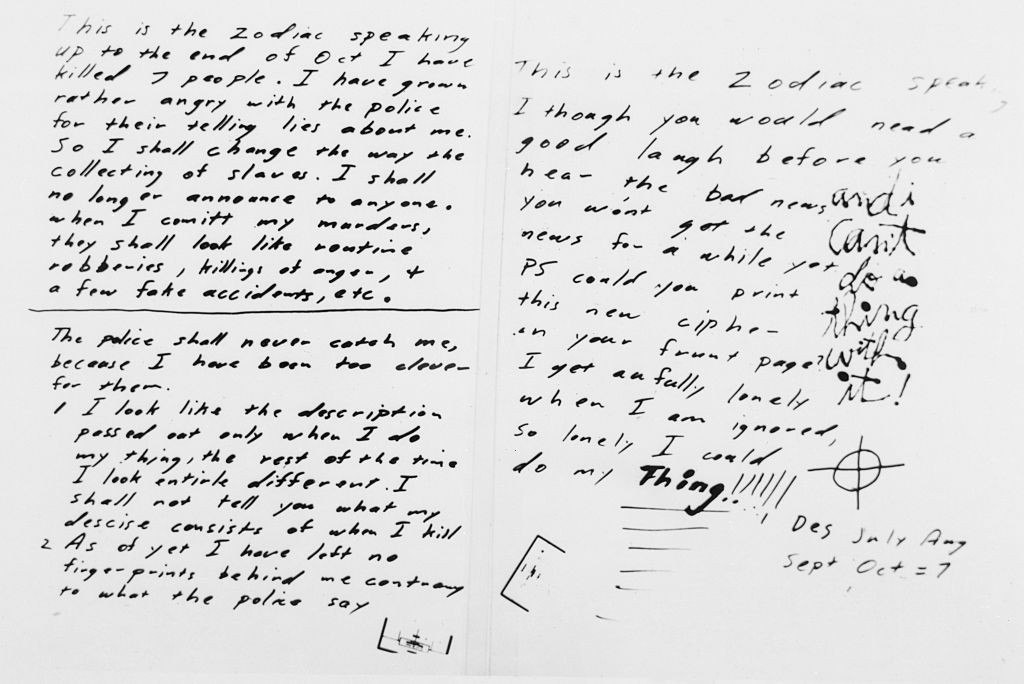 This is the Zodiac speaking
up to the end of Oct I have
killed 7 people. I have grown
rather angry with the police
for their telling lies about me.
So I shall change the way the
collecting of slaves. I shall
no longer announce to anyone.
when I comitt my murders,
they shall look like routine
robberies, killings of anger, +
a few fake accidents, etc.
The police shall never catch me,
because I have been too clever
for them.
1 I look like the description
passed out only when I do
my thing, the rest of the time
I look entirle different. I
shall not tell you what my
descise consists of when I kill
2 As of yet I have left no
fingerprints behind me contrary
to what the police say
This is the Zodiac speak
I though you would nead a
good laugh before you
hear the bad news
you won't get the
news for a while yet
PS could you print
this new cipher
in your frunt page?
I get aufully lonely
when I am ignored,
So lonely I could
do my Thing!!!!!!
and i
Can't
do a
thing
with
it!
Des July Aug
Sept Oct = 7